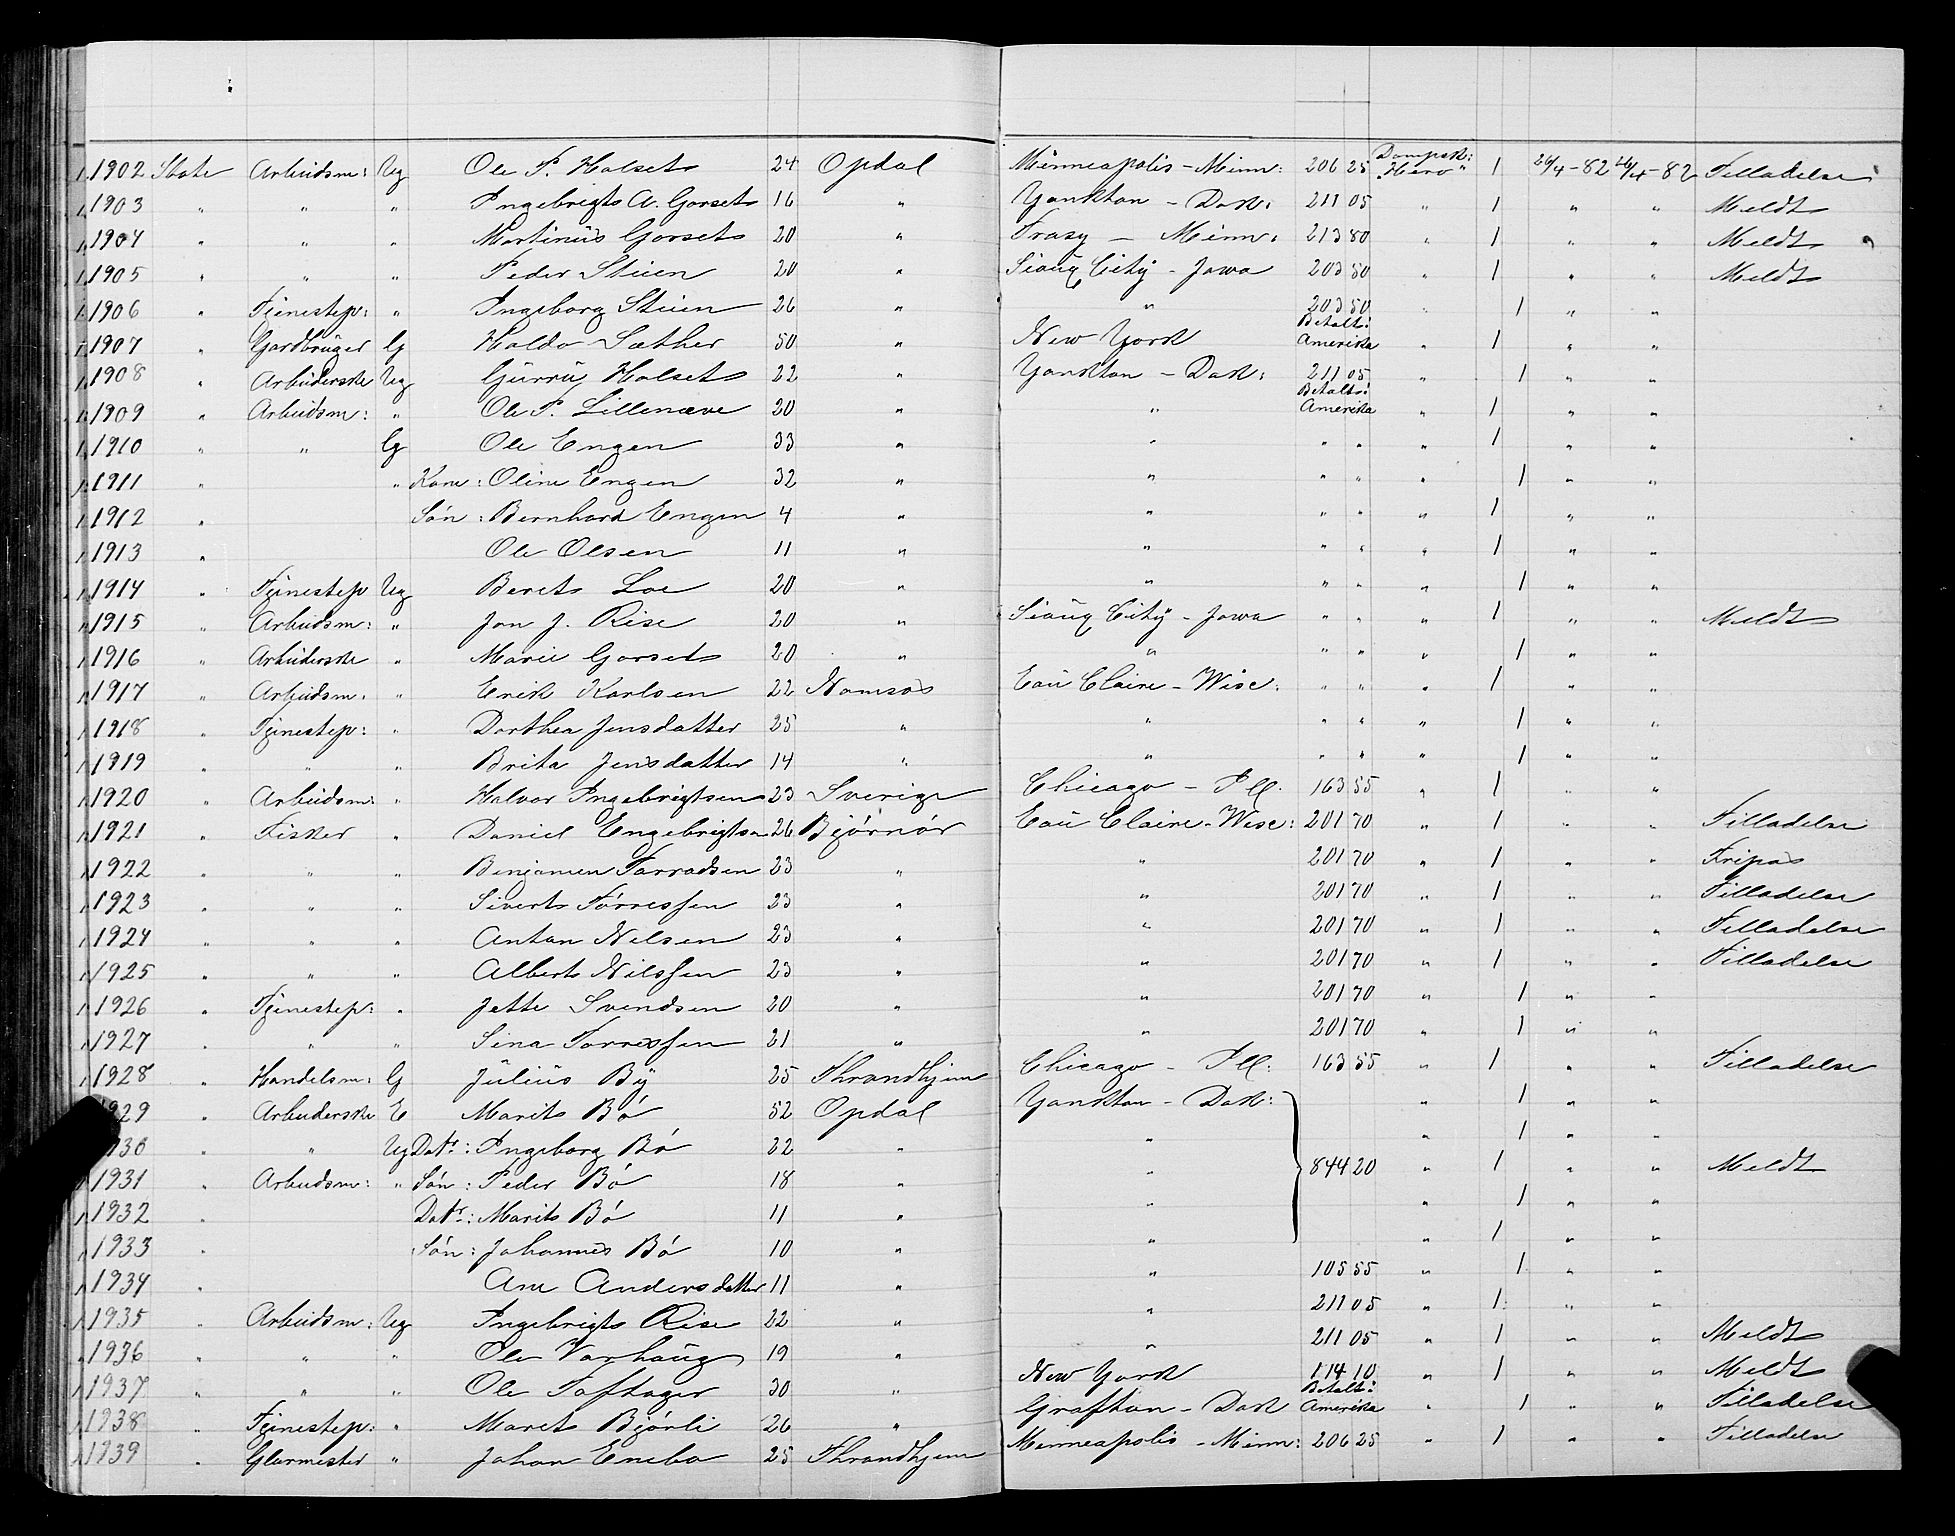 1902 State Arbeidsm: Ug Ole P. Halseth 24 Opdal Minneapolis - Minn: 206 25 Dampsk: "Hero" 1 26/4-82 26/4-82 Tilladelse
1903 " " " Ingebrigt A. Gorset 16 " Yankton - Dak: 211 05 " 1 " " Meldt
1904 " " " Martinus Gorset 20 " Trasy - Minn: 213 80 " 1 " " Meldt
1905 " " " Peder Stuen 20 " Sioux City - Jowa 203 50 " 1 " " Meldt
1906 " Tjenestep: " Ingeborg Stuen 26 " " 203 50 " 1 " "
1907 " Gardbruger G Haldo Sæther 50 " New York Betalt i Amerika " 1 " "
1908 " Arbeiderske Ug Gurru Halset 22 " Yankton - Dak: 211 05 " 1 " "
1909 " Arbeidsm: " Ole P. Lillenæve 20 " " Betalt i Amerika " 1 " "
1910 " " G Ole Engen 33 " " " " " 1 " "
1911 " " Kone: Oline Engen 32 " " " " " 1 " "
1912 " Søn: Bernhard Engen 4 " " " " " 1 " "
1913 " Ole Olsen 11 " " " " " 1 " "
1914 " Tjenestep Ug Beret Loe 20 " " " " " 1 " "
1915 " Arbeidsm: " Jon J. Rise 20 " Sioux City - Jowa " " " 1 " " Meldt
1916 " Arbeiderske " Marie Gorset 20 " " " " " 1 " "
1917 " Arbeidsm: " Erik Karlsen 22 Namsos Eau Claire - Wisc: " " " 1 " "
1918 " Tjenestep: " Dorthea Jensdatter 25 " " " " " 1 " "
1919 " " " Brita Jensdatter 14 " " " " " 1 " "
1920 " Arbeidsm: " Halvor Ingebrigtsen 23 Sverige Chicago - Ill. 163 55 " 1 " "
1921 " Fisker " Daniel Engebrigtsen 26 Bjørnør Eau Claire - Wisc: 201 70 " 1 " " Tilladelse
1922 " " " Benjamin Tarradsen 23 " " 201 70 " 1 " " Fripas
1923 " " " Sivert Tørressen 23 " " 201 70 " 1 " " Tilladelse
1924 " " " Anton Nilsen 23 " " 201 70 " 1 " " Tilladelse
1925 " " " Albert Nilssen 23 " " 201 70 " 1 " " Tilladelse
1926 " Tjenestep: " Jette Svendsen 20 " " 201 70 " 1 " "
1927 " " " Sina Torressen 21 " " 201 70 " 1 " "
1928 " Handelsm: G Julius By 25 Thrandhjem Chicago - Ill: 163 55 " 1 " " Tilladelse
1929 " Arbeiderske E Marit Bø 52 Opdal Yankton - Dak: " 1 " "
1930 " " Ug Datr: Ingeborg Bø 22 " " " 1 " "
1931 " Arbeidsm: " Søn: Peder Bø 18 " " 844 20 " 1 " " Meldt
1932 " Datr: Marit Bø 11 " " " 1 " "
1933 " Søn: Johannes Bø 10 " " " 1 " "
1934 " Ane Andersdatter 11 " " 105 55 " 1 " "
1935 " Arbeidsm: Ug Ingebrigt Rise 22 " " 211 05 " 1 " "
1936 " " " Ole Varhaug 19 " " 211 05 " 1 " " Meldt
1937 " " " Ole Toftager 30 " New York 114 10 " 1 " " Meldt
1938 " Tjenestep: " Maret Bjørli 26 " Grafton - Dak Betalt i Amerika " 1 " " Tilladelse
1939 " Glarmester " Johan Enebo 25 Thrandhjem Minneapolis - Minn: 206 25 " 1 " " Tilladelse